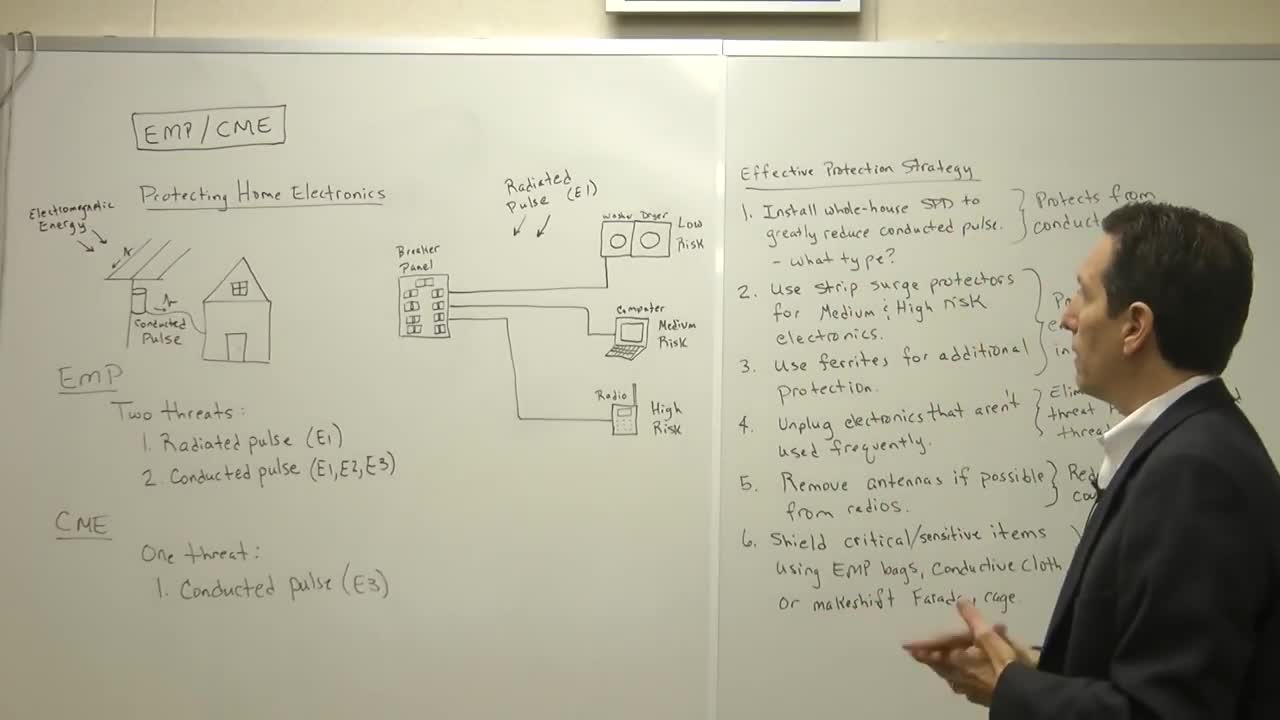 EMP/CME
Protecting Home Electronics
Electromagnetic
Energy
Conducted
Pulse
EMP
Two threats:
1. Radiated pulse (E1)
2. Conducted pulse (E1,E2,E3)
CME
One threat:
1. Conducted pulse (E3)
Radiated
Pulse (E1)
Breaker
Panel
Washer Dryer
Low
Risk
Computer
Medium
Risk
Radio
High
Risk
Effective Protection Strategy
1. Install whole-house SPD to
greatly reduce conducted pulse.
- what type?
Protects from
2. Use strip surge protectors
for Medium & High risk
electronics.
3. Use ferrites for additional
protection.
in
4. Unplug electronics that aren't
used frequently.
threat
5. Remove antennas if possible
from radios.
6. Shield critical/sensitive items
using EMP bags, conductive cloth
or makeshift cage.